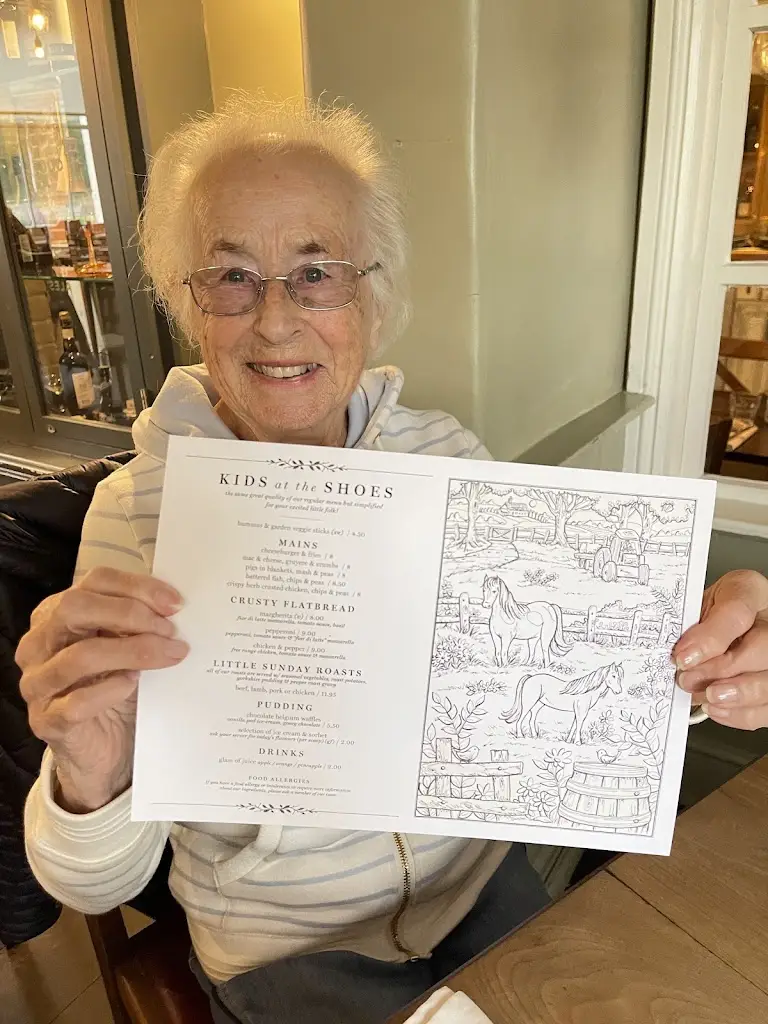 KIDS at the SHOES
the same great quality of our regular menu but simplified
for your excited little folk!
hummus & garden veggie sticks (ve) / 4.50
MAINS
cheeseburger & fries / 8
mac & cheese, gruyere & crumbs / 8
pigs in blankets, mash & peas / 8
battered fish, chips & peas / 8.50
crispy herb crusted chicken, chips & peas / 8
CRUSTY FLATBREAD
margherita (v) / 8.00
fior di latte mozzarella, tomato sauce, basil
pepperoni / 9.00
pepperoni, tomato sauce & "fior di latte" mozzarella
chicken & pepper / 9.00
free range chicken, tomato sauce & mozzarella
LITTLE SUNDAY ROASTS
all of our roasts are served w/ seasonal vegetables, roast potatoes,
yorkshire pudding & proper roast gravy
beef, lamb, pork or chicken / 11.95
PUDDING
chocolate belgium waffles
vanilla pod ice cream, gooey chocolate / 5.50
selection of ice cream & sorbet
ask your server for today's flavours (per scoop) (gf) / 2.00
DRINKS
glass of juice apple / orange / pineapple / 2.00
FOOD ALLERGIES
if you have a food allergy or intolerance or require more information
about our ingredients, please ask a member of our team